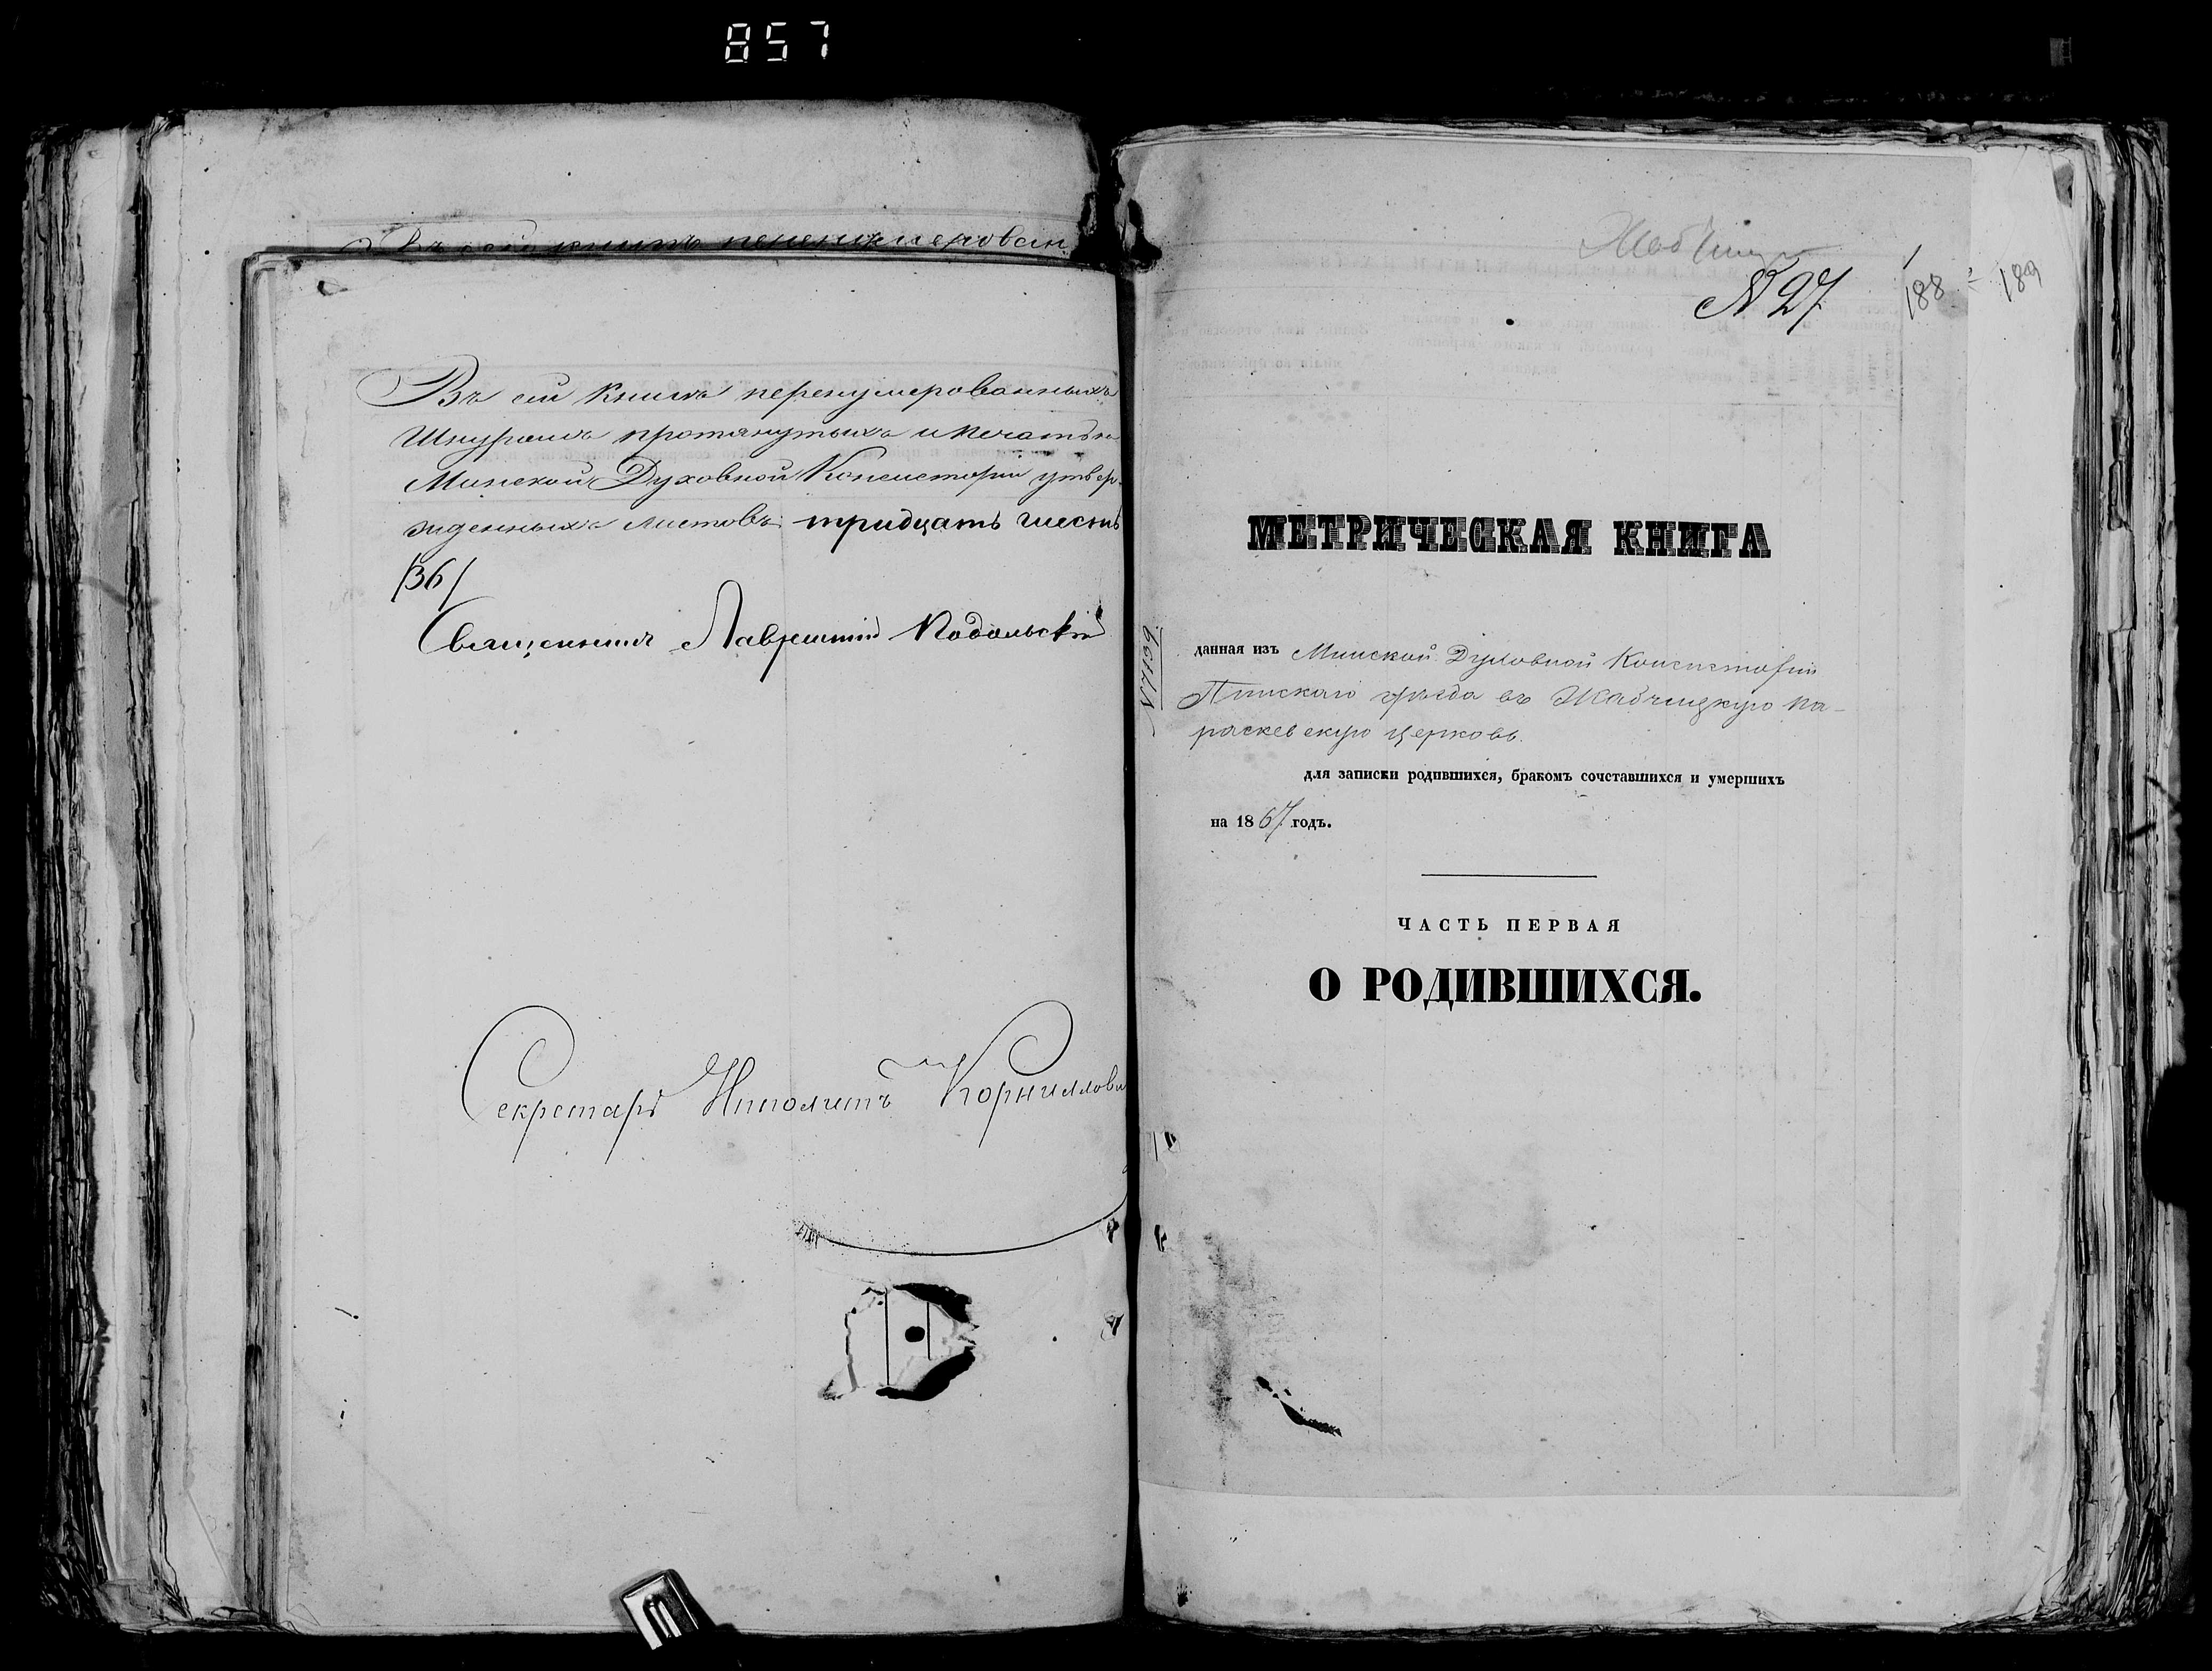 857
Въ сей книгѣ перенумерован
Въ сей книгѣ перенумерованныхъ
Шнуромъ протянутыхъ и печатью
Минской Духовной Консисторіи утвер-
жденныхъ листовъ тридцать шесть
/36/
Священникъ Лаврентій Подольскій
Секретарь Ипполитъ Корнилови
Жабчицы
№ 27
1
188 189
МЕТРИЧЕСКАЯ КНИГА
№ 17139
данная изъ Минской Духовной Консисторіи
Пинскаго уѣзда въ Жабчицкую Па-
раскевскую церковь.
для записки родившихся, бракомъ сочетавшихся и умершихъ
на 1867 годъ.
ЧАСТЬ ПЕРВАЯ
О РОДИВШИХСЯ.